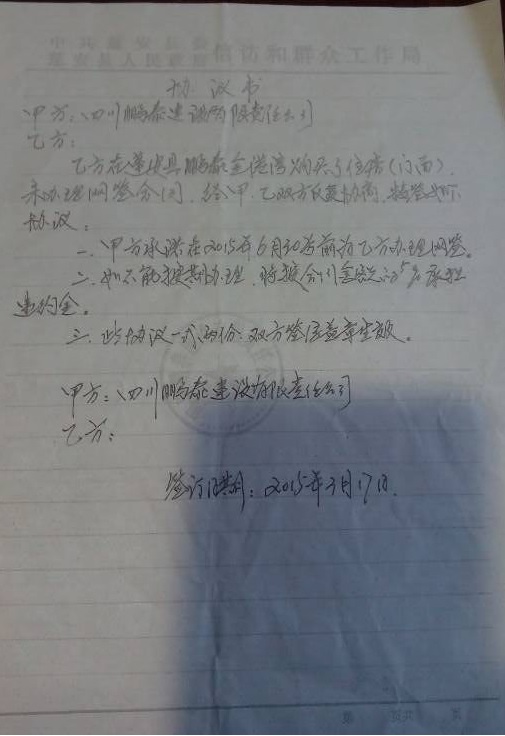 中共蓬安县委
蓬安县人民政府信访和群众工作局
协议书
甲方：四川鹏泰建设有限责任公司
乙方：
乙方在蓬安县鹏泰金港湾购买了住房（门面），
未办理网签合同，经甲、乙双方反复协商，特签如下
协议：
一、甲方承诺在2015年6月30号前为乙方办理网签。
二、如不能按期办理，将按合同金额的5%承担
违约金。
三、此协议一式两份，双方签字盖章生效。
甲方：四川鹏泰建设有限责任公司
乙方：
签订日期：2015年3月17日
第 页共 页